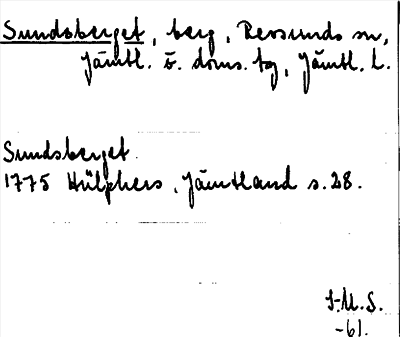 Sundsberget, berg, Revsunds sn,
Jämtl. v. doms. tg, Jämtl. L.
Sundsberget
1775 Hülphers, Jämtland s. 28.
J.M.S.
-61.